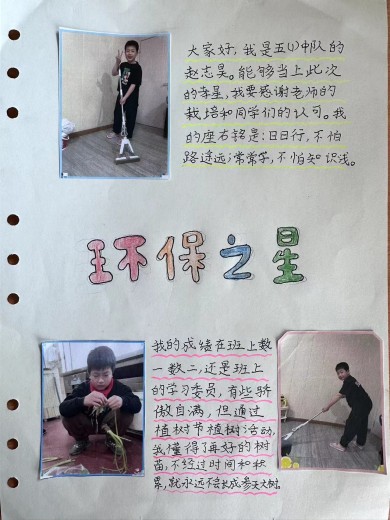 大家好，我是五（1）中队的
赵志昊。能够当上此次
的幸星，我要感谢老师的
栽培和同学们的认可。我
的座右铭是：日日行，不怕
路途远；常常学，不怕知识浅。
环保之星
我的成绩在班上数
一数二，还是班上
的学习委员，有些骄
傲自满，但通过
植树节植树活动，
我懂得了再好的树
苗，不经过时间和积
累，就永远不会长成参天大树。